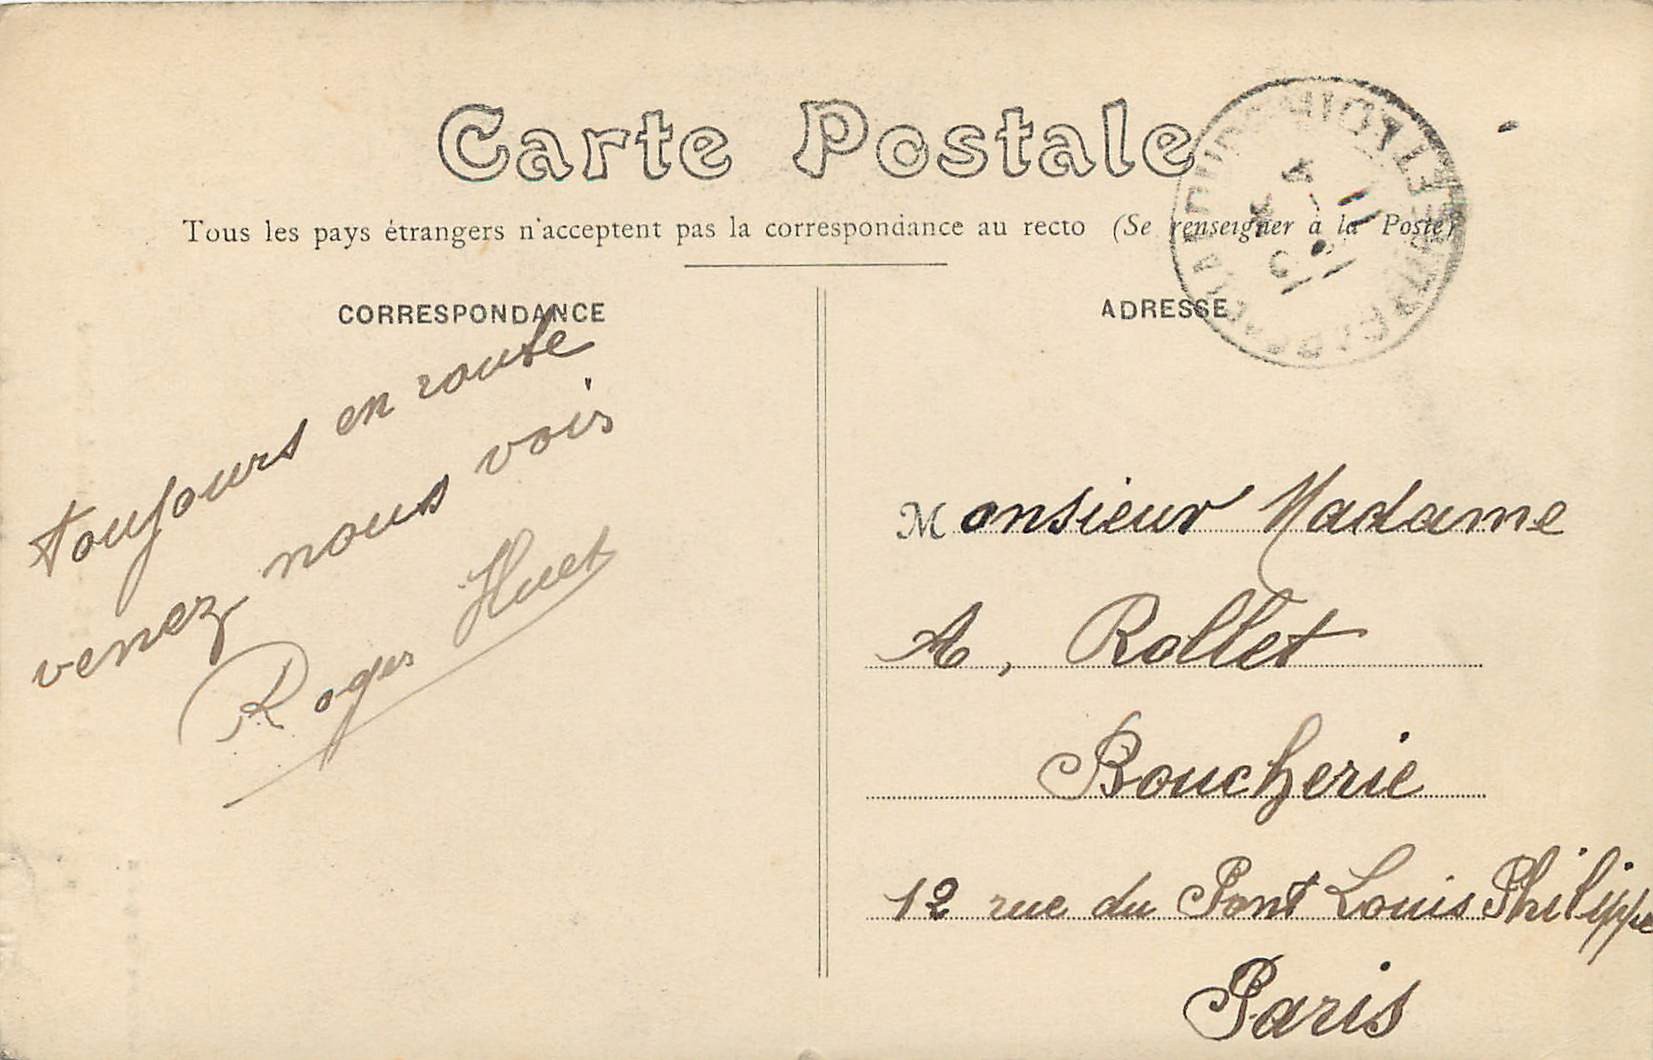 Carte Postale
Tous les pays étrangers n'acceptent pas la correspondance au recto (Se renseigner à la Poste)
CORRESPONDANCE
Toujours en route
venez nous vois
Roger Huet
ADRESSE
Monsieur Madame
A, Rollet
Boucherie
12 rue du Pont Louis Philippe
Paris